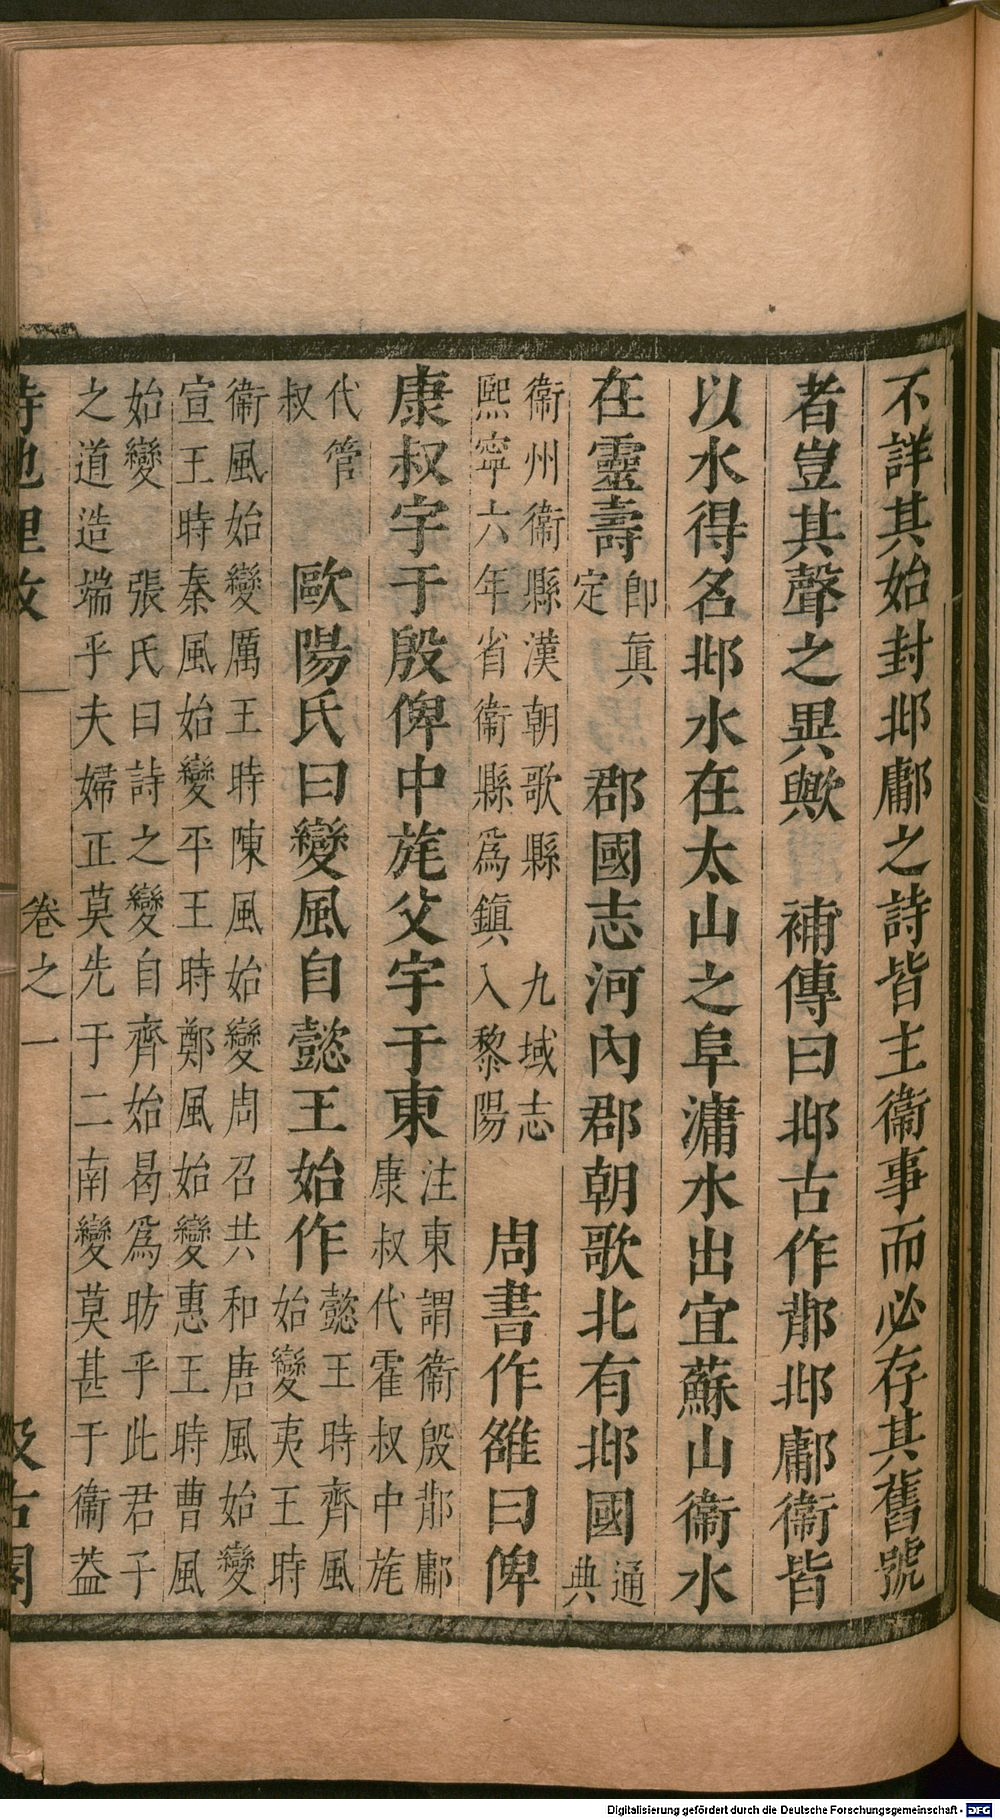 不詳其始封邶鄘之詩皆主衞事而必存其舊號
者豈其聲之異歟 補傳曰邶古作鄁邶鄘衞皆
以水得名邶水在太山之阜滽水出宜蘇山衞水
在靈壽
即眞
定
郡國志河內郡朝歌北有邶國
通
典
衞州衞縣漢朝歌縣 九域志
熙寧六年省衞縣爲鎮入黎陽
周書作雒曰俾
康叔宇于殷俾中旄父宇于東
注東謂衞殷鄁鄘
康叔代霍叔中旄
代管
叔
歐陽氏曰變風自懿王始作
懿王時齊風
始變夷王時
衞風始變厲王時陳風始變周召共和唐風始變
宣王時秦風始變平王時鄭風始變惠王時曹風
始變 張氏曰詩之變自齊始曷爲昉乎此君子
之道造端乎夫婦正莫先于二南變莫甚于衞葢
詩地里攷 卷之一 汲古閣
Digitalisierung gefördert durch die Deutsche Forschungsgemeinschaft - DFG